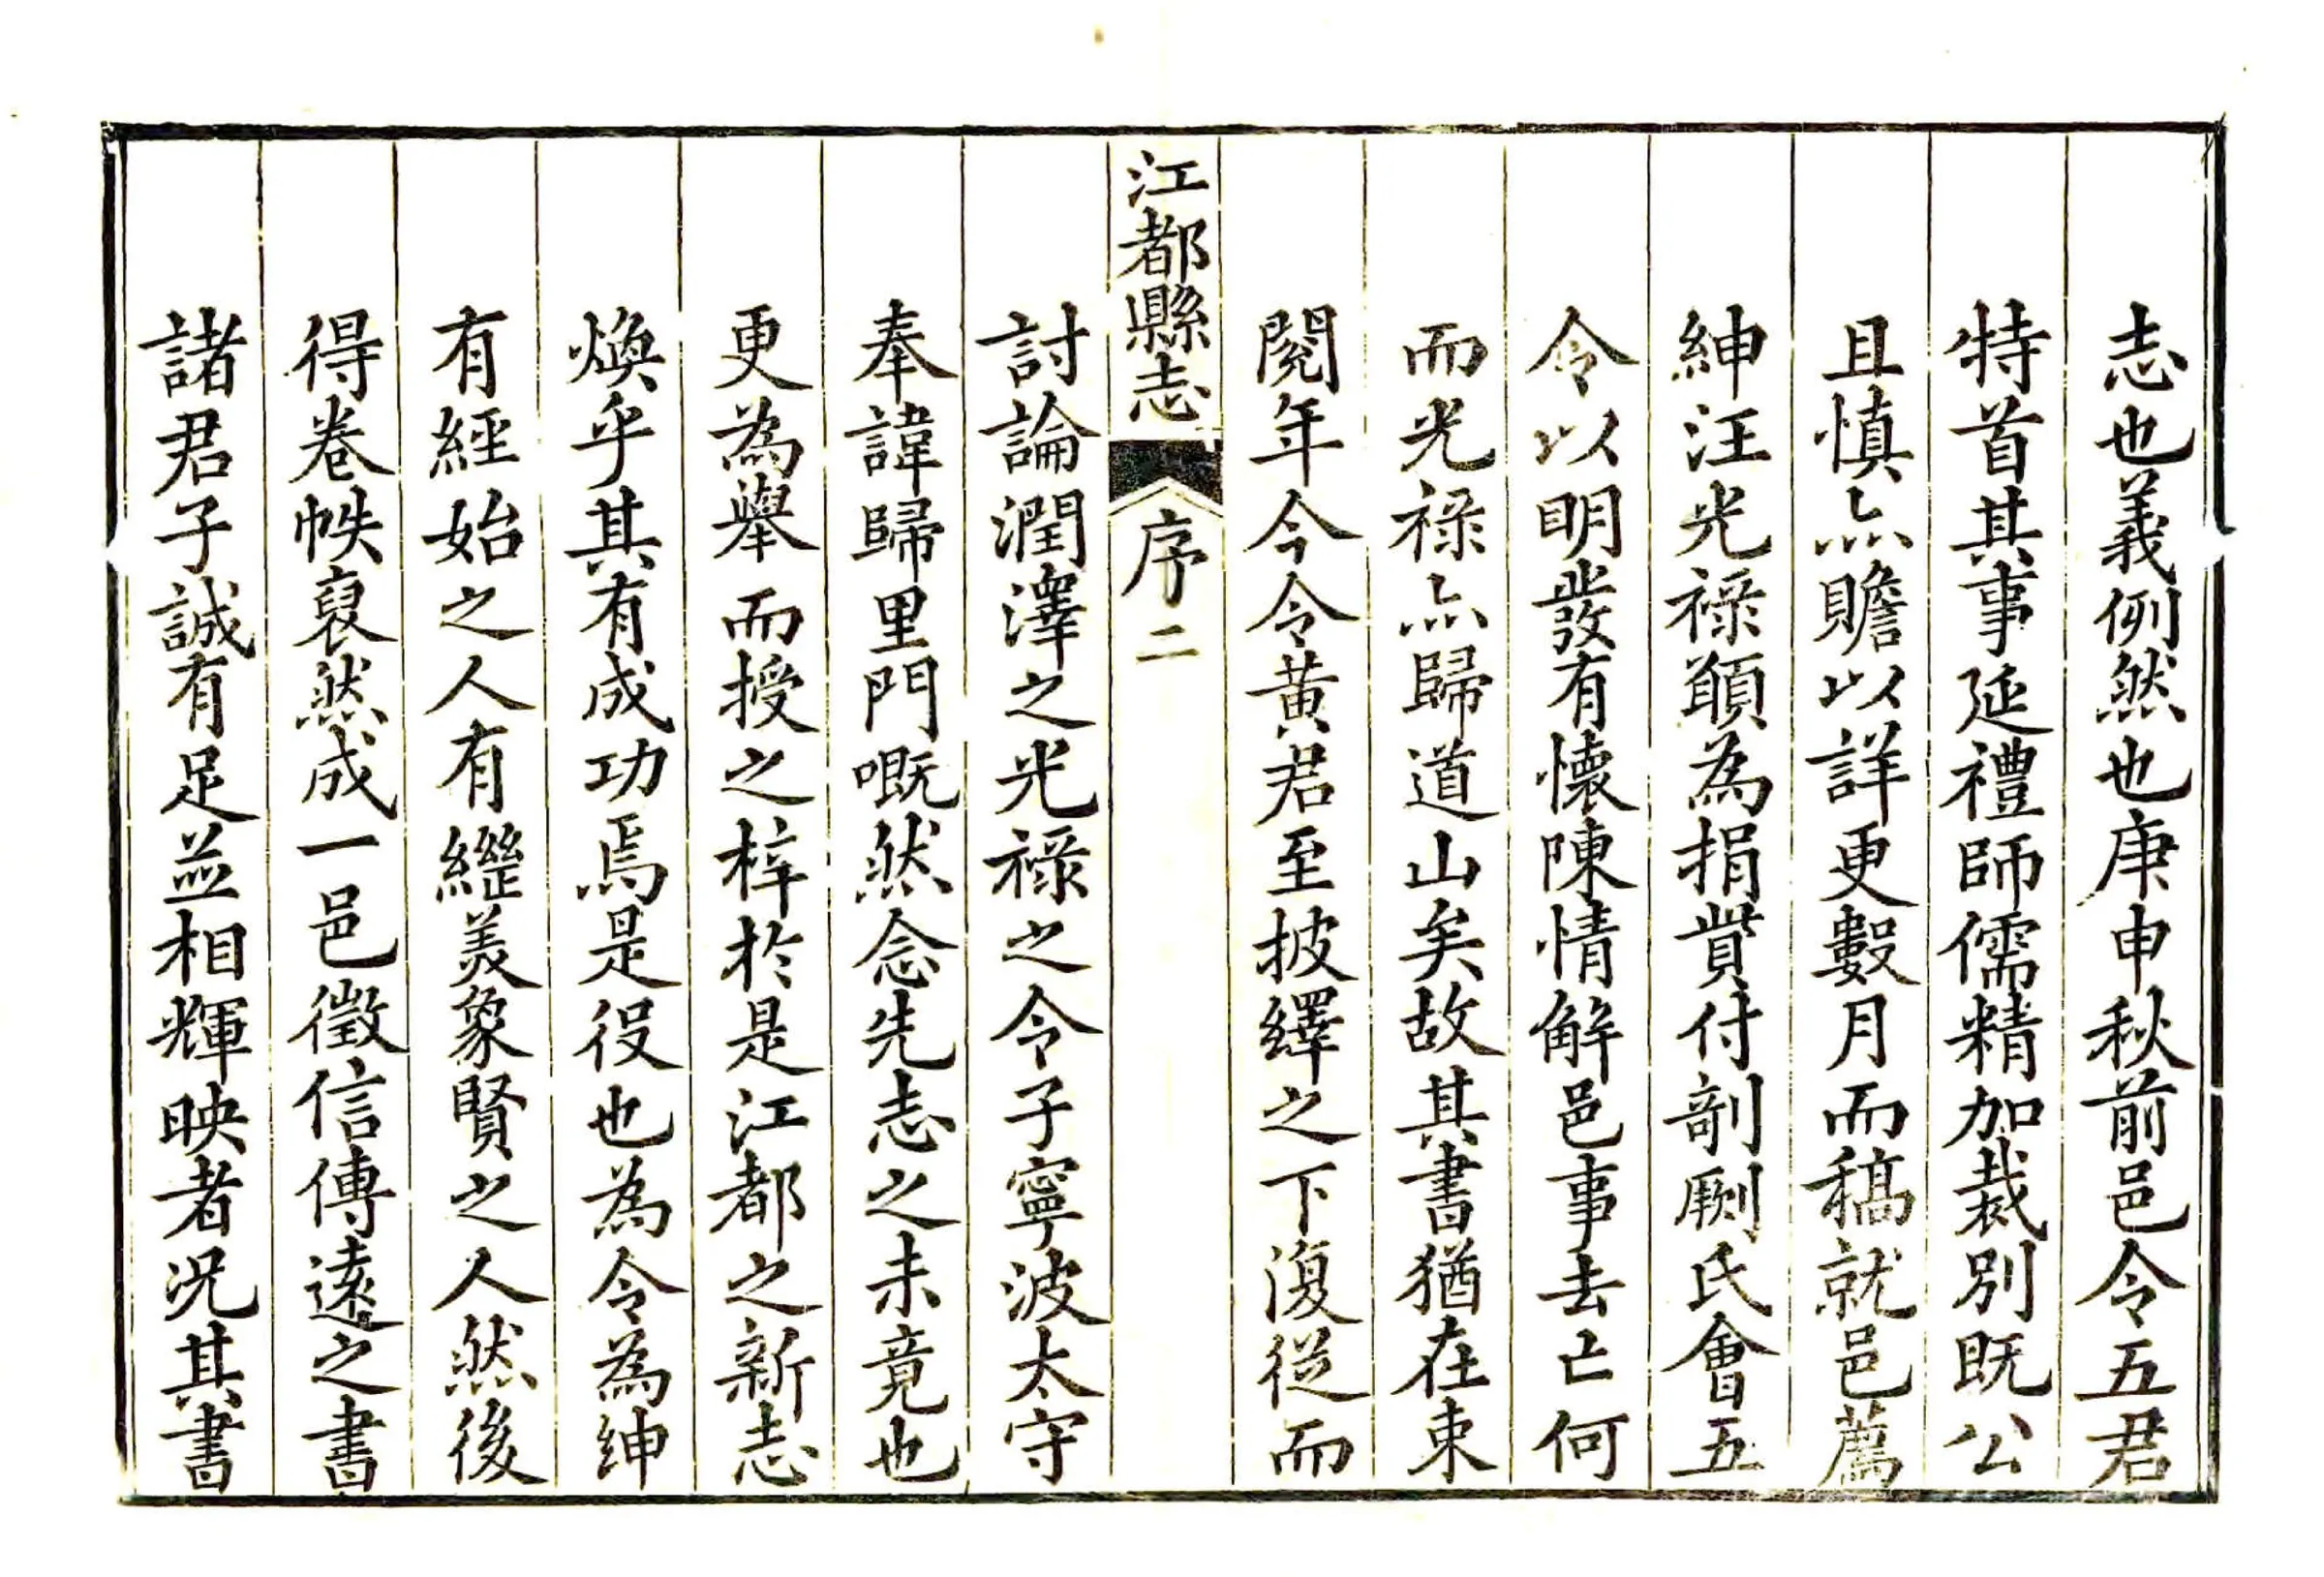 志也義例然也庚申秋前邑令五君
特首其事延禮師儒精加裁別既公
且慎亦贍以詳更數月而稿就邑薦
紳汪光祿願為捐貲付剞劂氏會五
令以明發有懷陳情解邑事去亡何
而光祿亦歸道山矣故其書猶在束
閣年今令黃君至披繹之下復從而
江都縣志
序
二
討論潤澤之光祿之令子寧波太守
奉諱歸里門嘅然念先志之未竟也
更為舉而授之梓於是江都之新志
煥乎其有成功焉是役也為令為紳
有經始之人有繼美象賢之人然後
得卷帙裒然成一邑徵信傳遠之書
諸君子誠有足並相輝映者況其書